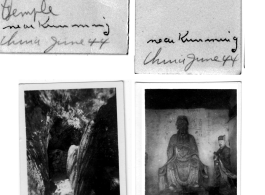 Temple
near Kunming
China June 44
near Kunming
China June 44